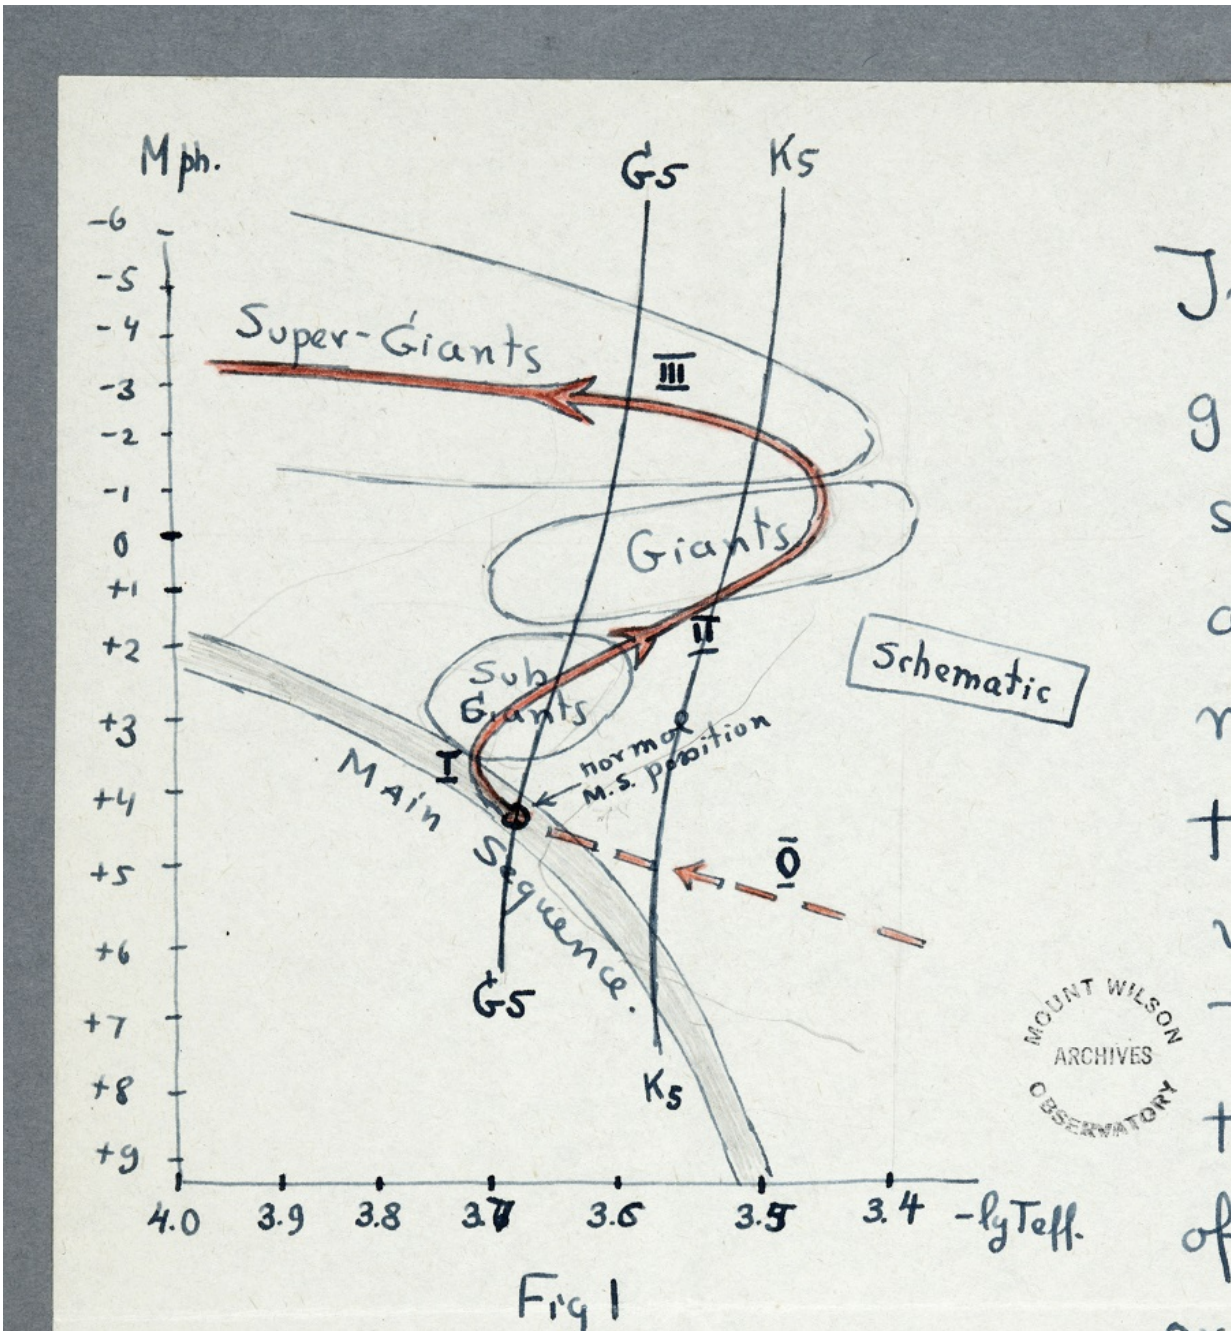 M ph.
G5
K5
-6
-5
-4
-3
-2
-1
0
+1
+2
+3
+4
+5
+6
+7
+8
+9
Super-Giants
III
Giants
II
Sub
Giants
Schematic
I
normal
M.S. position
Main
Sequence.
O
G5
K5
MOUNT WILSON
ARCHIVES
OBSERVATORY
4.0 3.9 3.8 3.7 3.6 3.5 3.4 -lgTeff.
Fig 1
g
s
of